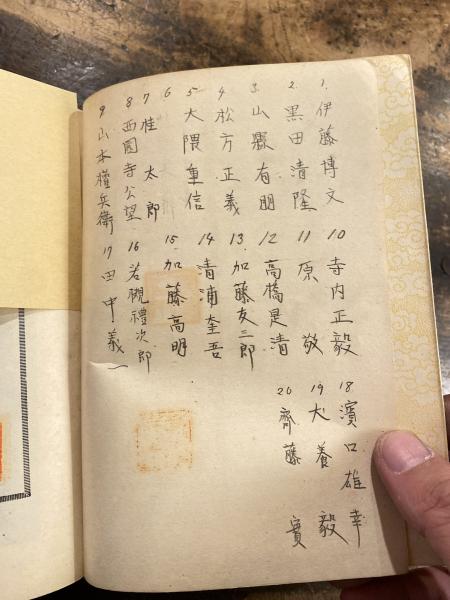 1. 伊藤博文
2. 黒田清隆
3. 山縣有朋
4. 松方正義
5. 大隈重信
6
7 桂太郎
8 西園寺公望
9 山本權兵衛
10 寺内正毅
11 原敬
12 高橋是清
13 加藤友三郎
14 清浦奎吾
15 加藤高明
16 若槻禮次郎
17 田中義一
18 濱口雄幸
19 犬養毅
20 齋藤實